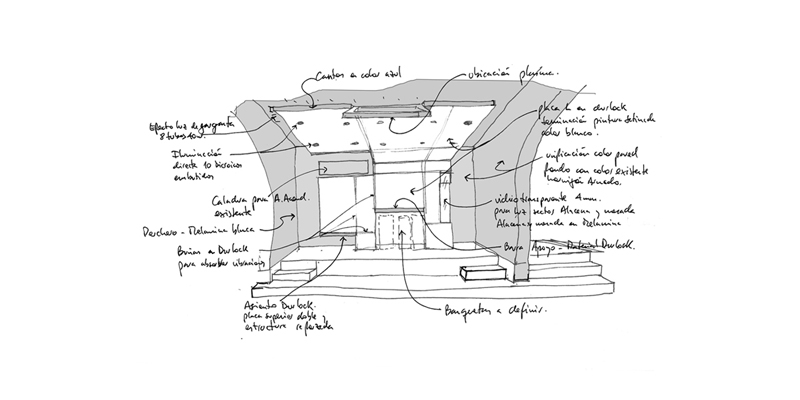 Cantos en color azul
ubicación plasma.
Efecto luz de garganta
8 tubos
Iluminación
directa 10 dicroicas
embutidos
Caladura para A. Acond.
existente
Melamina blanca
Buñas en Durlock
para absorber vibración
Asiento Durlock.
placa superior doble y
estructura reforzada
Banquetas a definir.
placa en durlock
terminación pintura satinada
color blanco.
unificación color pared
fondo con color existente
hormigón Armado.
vidrio transparente 4 mm.
para luz sector Alacena y mesada
Alacena y mesada en Melamina
Barra Apoyo - Material Durlock.